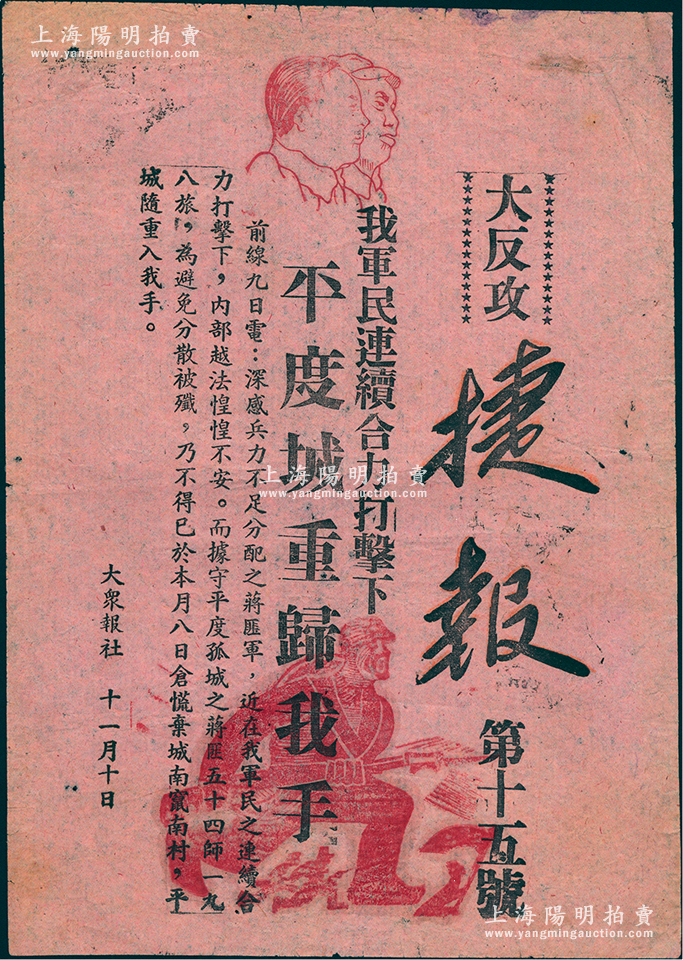 上海陽明拍賣
www.yangmingauction.com
上海陽明拍賣
www.yangmingauction.com
大反攻
捷報
第十五號
我軍民連續合力打擊下
平度城重歸我手
前線九日電：深感兵力不足分配之蔣匪軍，近在我軍民之連續合
力打擊下，內部越法惶惶不安。而據守平度孤城之蔣匪五十四師一九
八旅，為避免分散被殲，乃不得已於本月八日倉慌棄城南竄南村，平
城隨重入我手。
大眾報社 十一月十日
上海陽明拍賣
www.yangmingauction.com
上海陽明拍賣
www.yangmingauction.com